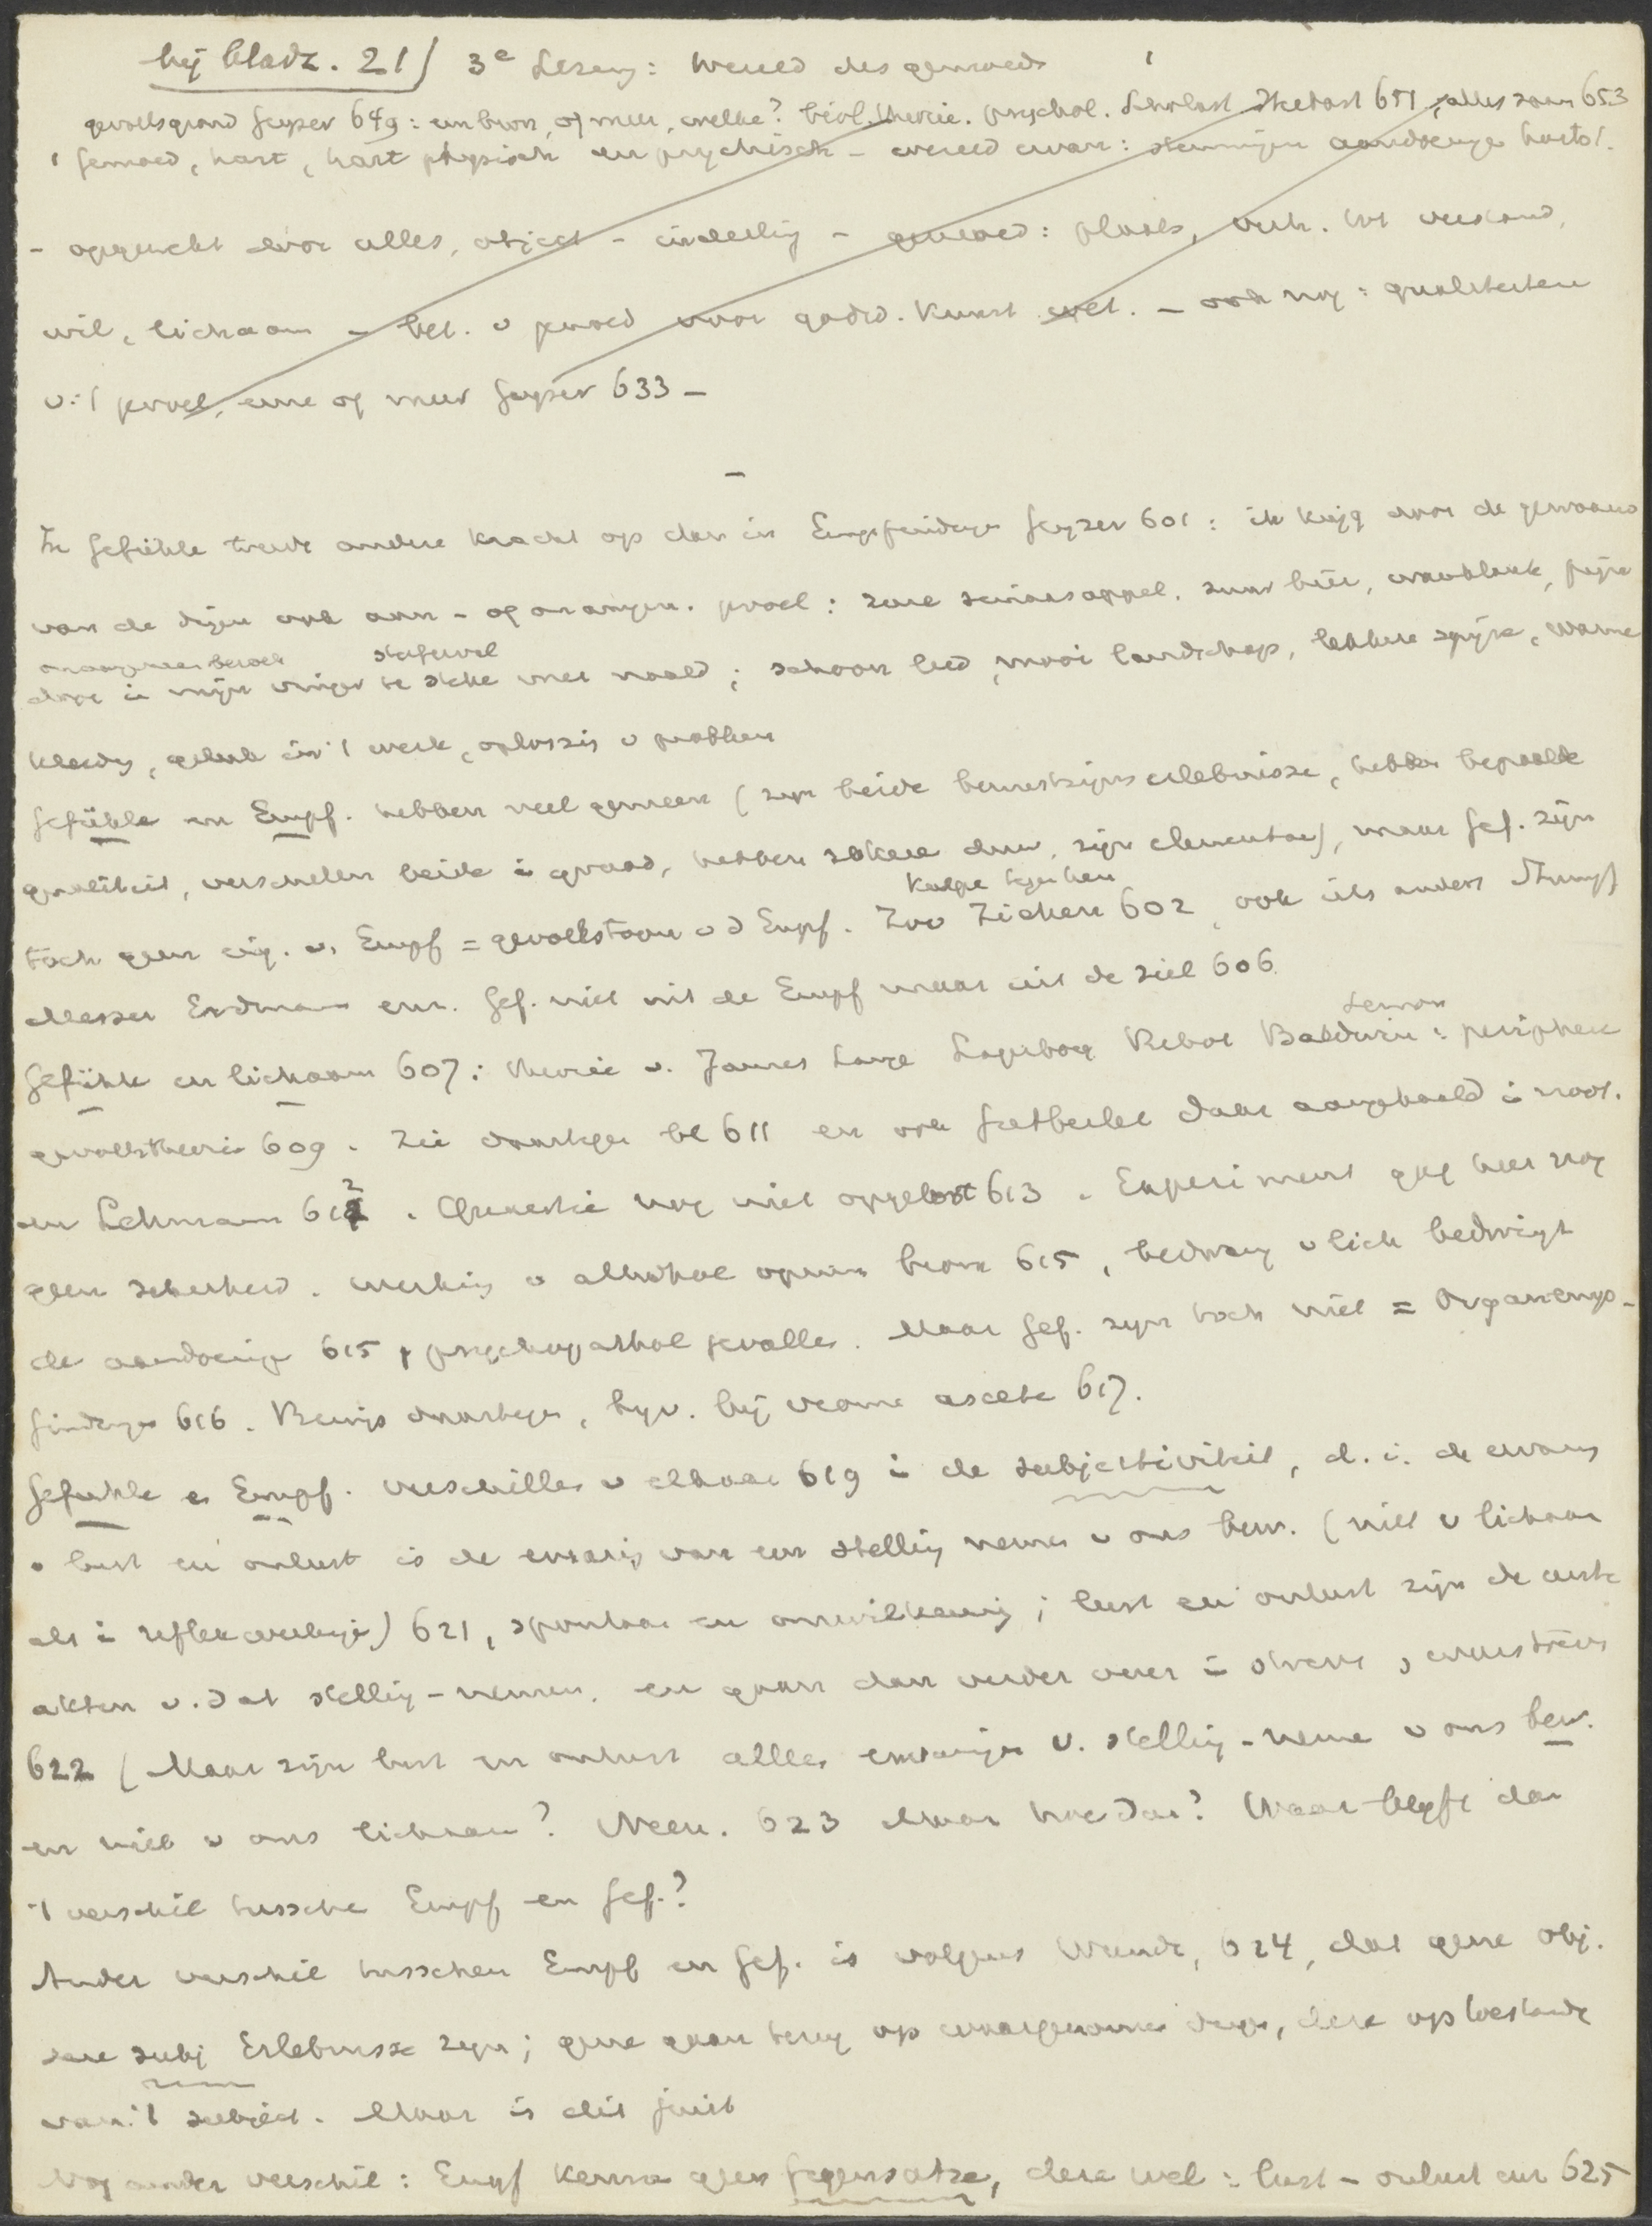 bij bladz. 21) 3e Lezing: Wereld des gemoeds
gevoelsgrond Geyser 649: een bron, of meer, welke? biol. theorie. psychol. Scholast 651, alles saam 653
gemoed, hart, hart physisch en psychisch - wereld ervan: stemmingen aandoeningen
- opgewekt door alles, object - indeeling - gemoed: plaats, verh. tot verstand,
wil, lichaam - bet. v gemoed voor godsd. Kunst wet. - ook nog: qualiteiten
v. 't gevoel, eene of meer Geyser 633 -
-
In Gefühle treedt andere kracht op dan in Empfindungen Geyser 601: ik krijg door de
van de dingen ook aan- of onaangen. gevoel: zure sinaasappel, zuur bier, pijn
onaangenaam
door in mijn vinger te steken met naald; schoon lied, mooi landschap, lekkere spijze, warme
kleeding, geluk in 't werk, oplossing v problem
Gefühle en Empf. hebben veel gemeen (zijn beide bewustzijnserlebnisse, hebben bepaalde
qualiteit, verschillen beide in graad, hebben zekere duur, zijn elementair), maar Gef. zijn
Kulpe
toch geen eig. v. Empf = gevoelstoon v d Empf. Zoo Ziehen 602, ook iets anders Stumpf
Messer Erdmann enz. Gef. niet uit de Empf maar uit de ziel 606.
Gefühle en lichaam 607: theorie v. James Lange Lagerborg Ribot Baldwin: periphere
gevoelstheorie 609. Zie daartegen bl 611 en ook daar aangehaald in noot.
en Lehmann 612. Quaestie nog niet opgelost 613. Experiment gaf hier nog
geen zekerheid. werking v alkohol opium broom 615, bedwang v lich bedwingt
de aandoeningen 615, psychopathol gevallen. Maar Gef. zijn toch niet = Organemp-
findungen 616. Bewijs daartegen, bijv. bij vrome asceten 617.
Gefuhle en Empf. verschillen v elkaar 619 in de subjectiviteit, d. i. de ervaring
v lust en onlust is de ervaring van een stelling nemen v ons bew. (niet v lichaam
als in reflexbeweging) 621, spontaan en onwillekeurig; lust en onlust zijn de eerste
akten v. dat stelling-nemen, en gaan dan verder over in streven, wederstreven
622 (Maar zijn lust en onlust alle ervaringen v. stelling-nemen v ons bew.
en niet v ons lichaam? Neen. 623 Maar hoe dan? Waar blijft dan
't verschil tusschen Empf en Gef.?
Ander verschil tusschen Empf en Gef. is volgens Wundt, 624, dat gene obj.
deze subj Erlebnisse zijn; gene gaan terug op waargenomen dingen, deze op toestand
van 't subject. Maar is dit juist
Nog ander verschil: Empf kennen geen Gegensatze, deze wel: lust - onlust enz 625